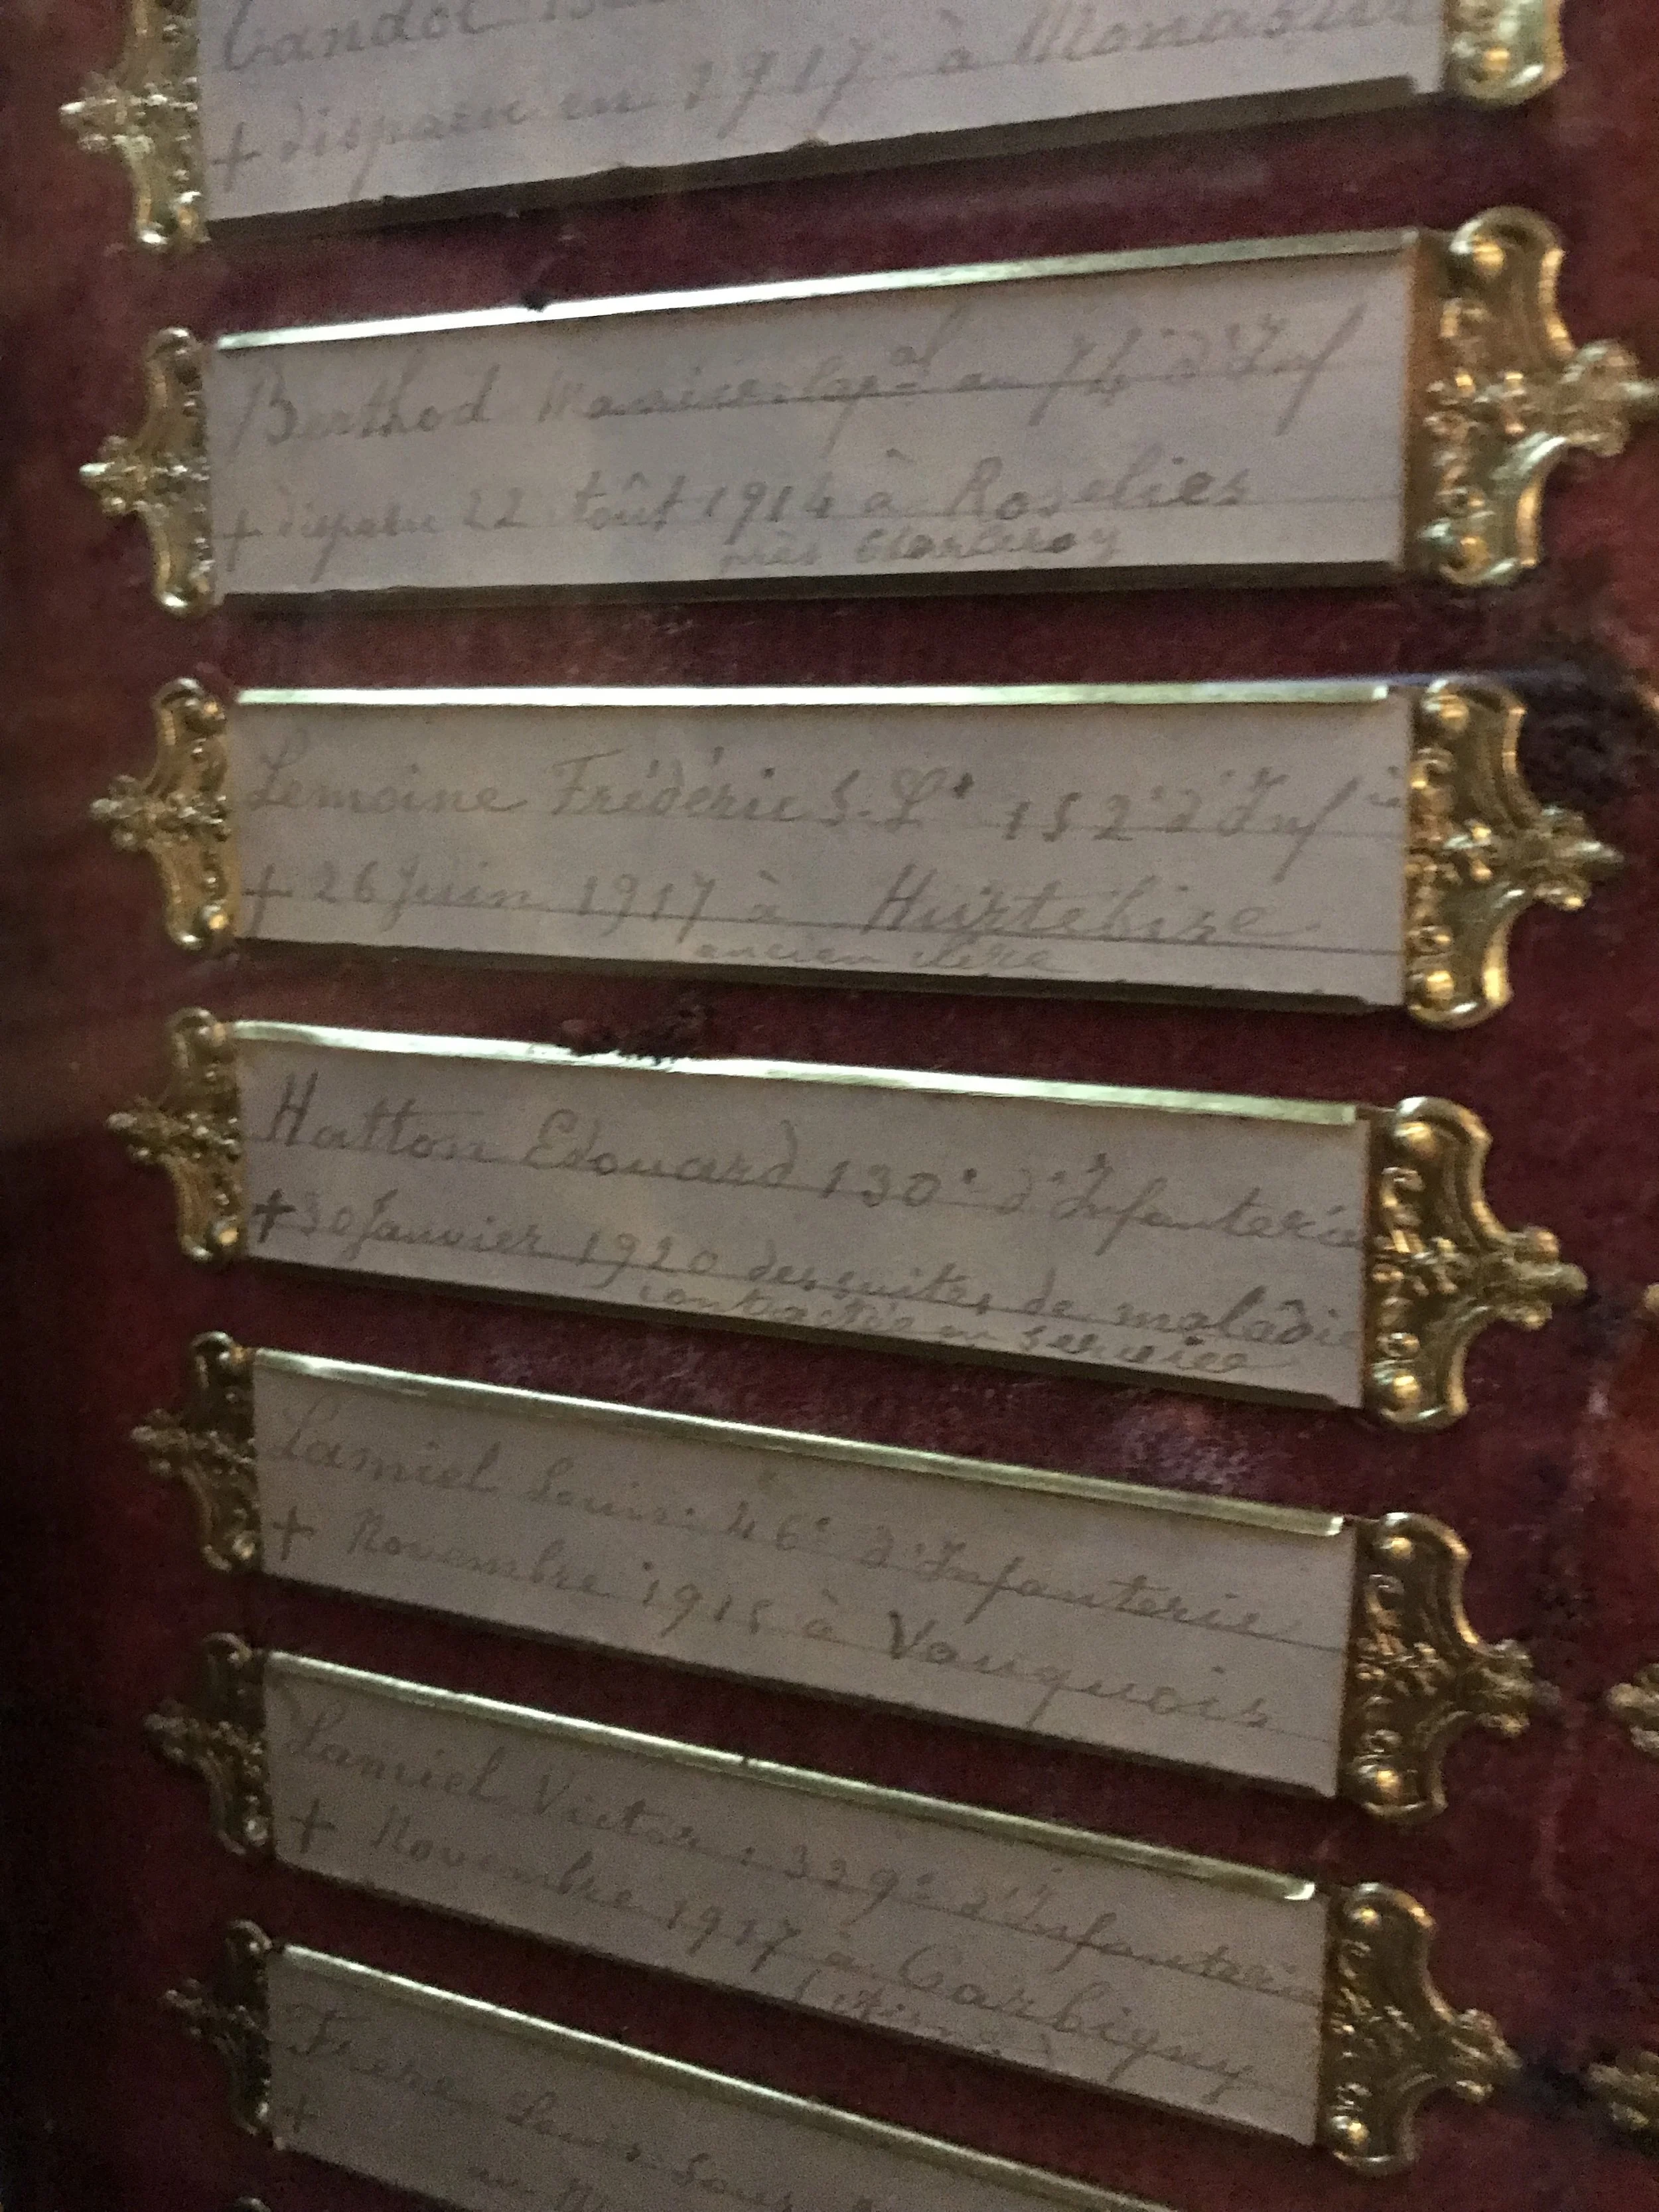 + disparu en 1917 à Monastir
Berthod Maurice cap^al au 74^e d'Inf
+ disparu 22 Août 1914 à Roselies
près Charleroy
Lemoine Frédéric S.-L^t 152^e d'Inf^ie
+ 26 Juin 1917 à Hurtebise
ancien élève
Hatton Edouard 130^e d'Infanterie
+ 30 Janvier 1920 des suites de maladie
contractée en service
Lamiel Louis 46^e d'Infanterie
+ Novembre 1915 à Vauquois
Lamiel Victor 329^e d'Infanterie
+ Novembre 1917 à Corbigny
(Aisne)
Louis Sous
+ au